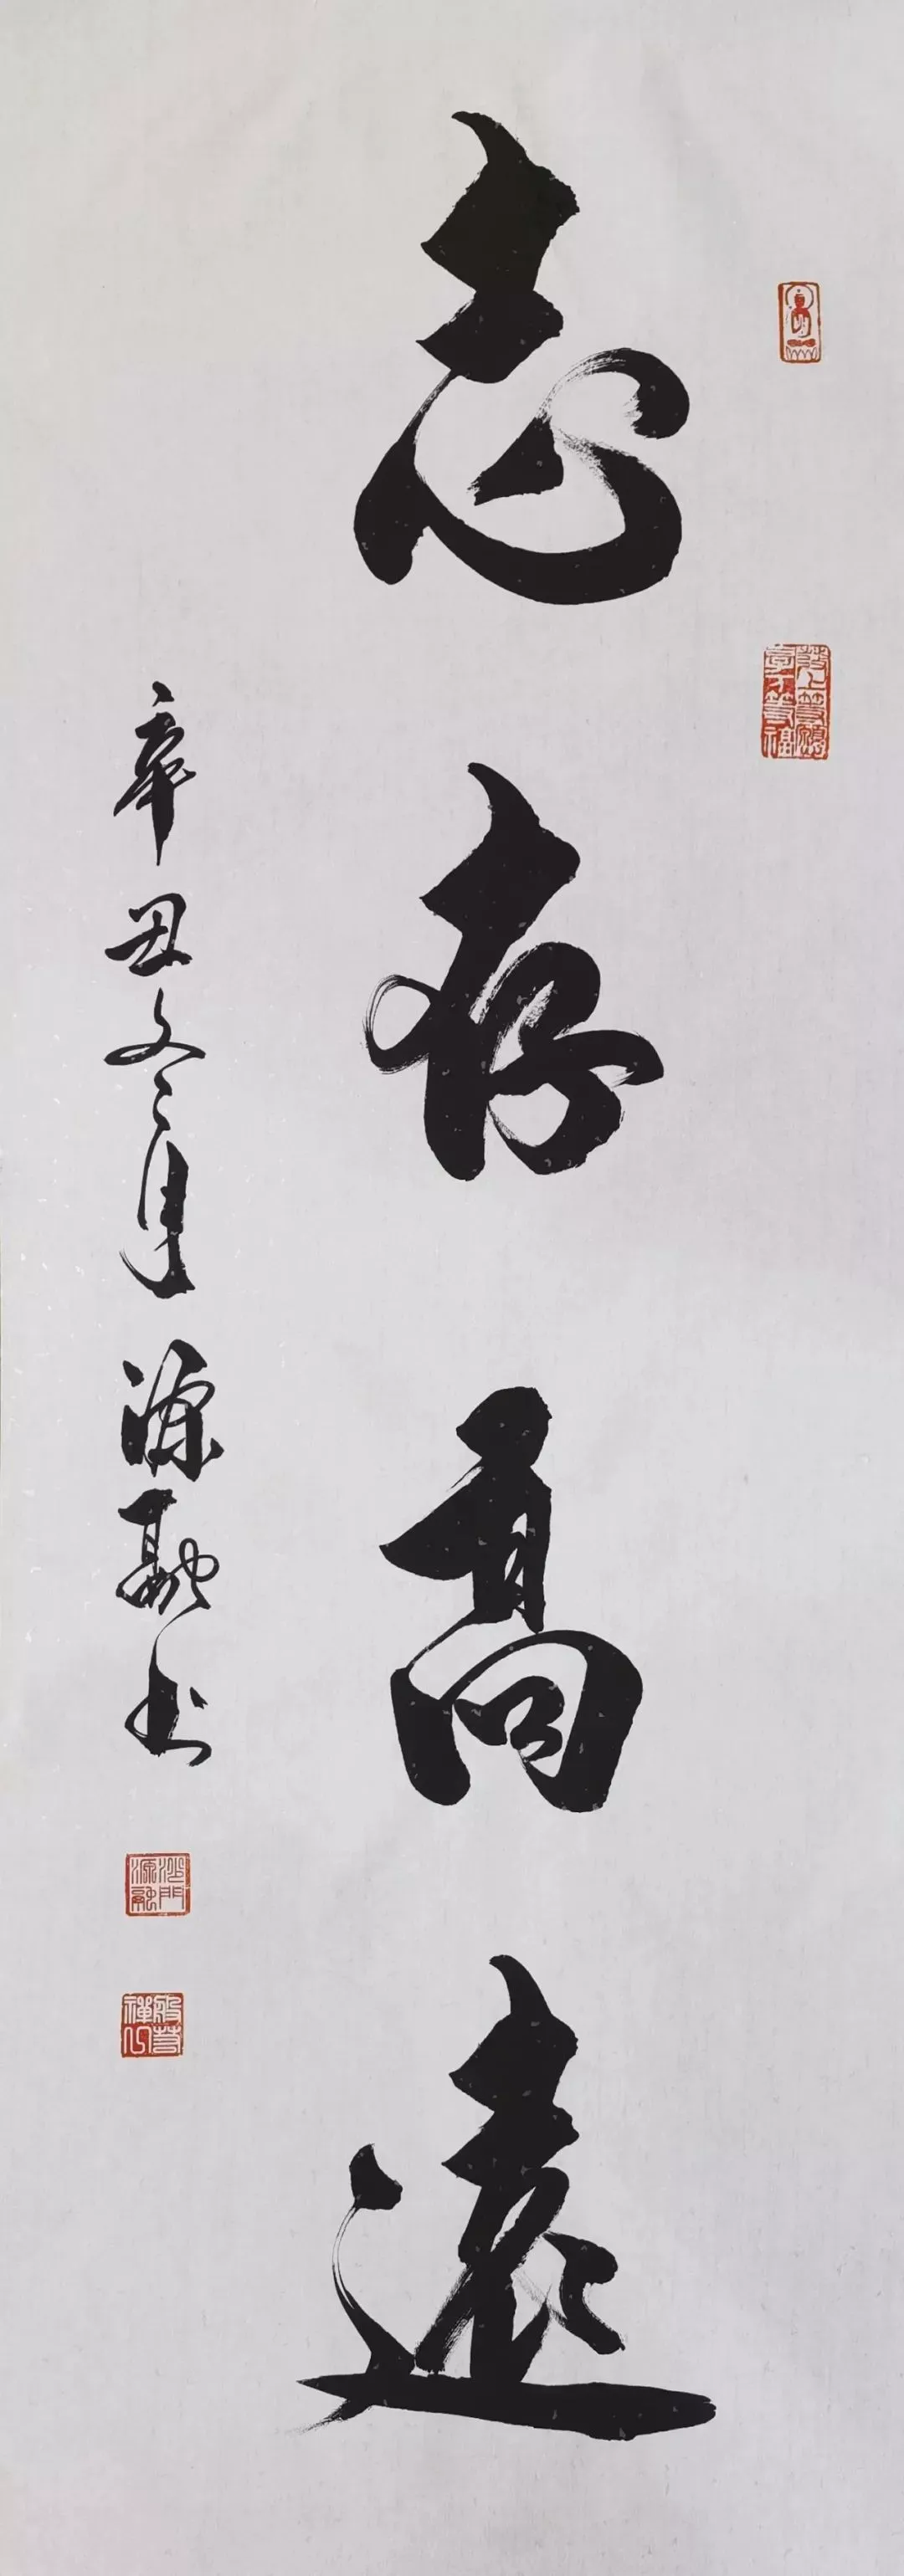 志存高遠
辛丑冬月源融书
沙門源融
般若禪心